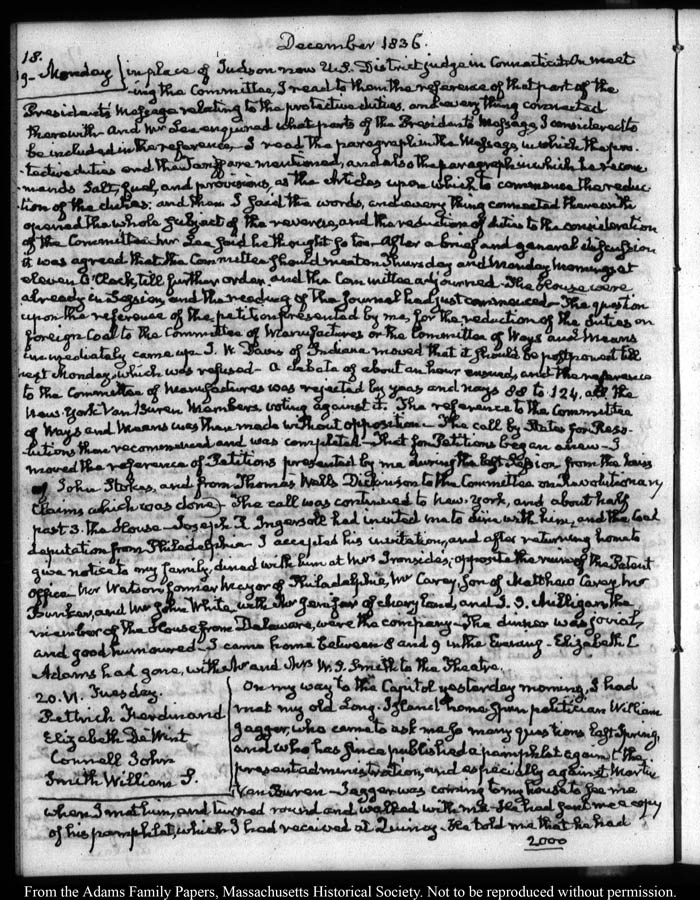 December 1836.
18.
19- Monday } in place of Judson now U.S. District judge in Connecticut. On meet
-ing the Committee, I read to them the reference of that part of the
Presidents Message relating to the protective duties, and every thing connected
therewith. And Mr Lee enquired what parts of the Presidents Message, I considered to
be included in the reference. I read the paragraph in the Message, in which the pro-
tective duties and the Tariff are mentioned, and also the paragraph in which he recom
mends Salt, fuel, and provisions, as the Articles upon which to commence the reduc
tion of the duties: and then I said the words, and every thing connected therewith
opened the whole subject of the revenue, and the reduction of duties to the consideration
of the Committee. Mr Lee said he thought so too. After a brief and general discussion
it was agreed that the Committee should meet on Thursday and Monday mornings at
eleven O'Clock, till further order, and the Committee adjourned. The House were
already in Session, and the reading of the Journal had just commenced. The question
upon the reference of the petition presented by me, for the reduction of the duties on
foreign Coal to the Committee of Manufactures or the Committee of Ways and Means
immediately came up. J. W. Davis of Indiana moved that it should be postponed till
next Monday, which was refused. A debate of about an hour ensued, and the reference
to the Committee of Manufactures was rejected by yeas and nays 88 to 124, all the
New-York Van Buren Members, voting against it. The reference to the Committee
of Ways and Means was then made without opposition. The call by States for Reso-
lutions then recommenced and was completed. That for Petitions began anew. I
moved the reference of Petitions presented by me during the last Session from the heirs
of John Stokes, and from Thomas Wells Dickerson to the Committee on Revolutionary
Claims which was done). The call was continued to New-York, and about half
past 3. the House. Joseph R. Ingersoll had invited me to dine with him, and the Coal
deputation from Philadelphia. I accepted his invitation, and after returning home to
give notice to my family, dined with him at Mrs Ironsides; opposite the ruin of the Patent
Office. Mr Watson former Mayor of Philadelphia, Mr Carey, Son of Matthew Carey, Mr
Bunker, and Mr John White, with Mr Jenifer of Maryland, and J. J. Milligan, the
member of the House from Delaware, were the company. The dinner was jovial,
and good humoured. I came home between 8 and 9 in the Evening. Elizabeth C
Adams had gone, with Mr and Mrs W. S. Smith to the Theatre.
20. VI. Tuesday.
Pettrich Ferdinand
Elizabeth DeWint
Connell John
Smith William S.
On my way to the Capitol yesterday morning, I had
met my old Long-Island home spun politician William
Jagger, who came to ask me so many questions last Spring,
and who has since published a pamphlet against the
present administration, and especially against Martin
Van Buren. Jagger was coming to my house to see me
when I met him, and turned round and walked with me. He had sent me a copy
of his pamphlet, which I had received at Quincy. He told me that he had
2000
From the Adams Family Papers, Massachusetts Historical Society. Not to be reproduced without permission.